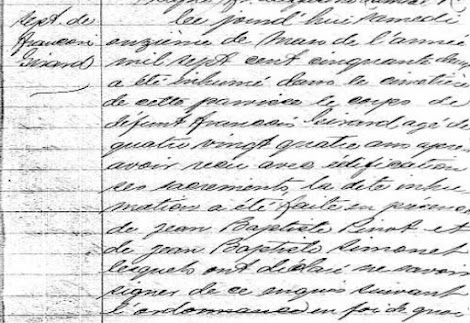 Sept. de
francois
Girard
Le jourd'hui samedi
onzième de mars de l'année
mil sept cent cinquante deux
a été inhumé dans le cimetière
de cette paroisse le corps de
défunt francois Girard agé de
quatre vingt quatre ans après
avoir recu avec édification
ses sacrements, la dite inhu
mation a été faite en présence
de jean Baptiste Pinot et
de jean Baptiste Simonet
lesquels ont déclaré ne savoir
signer de ce enquis suivant
l'ordonnance en foi de quoi